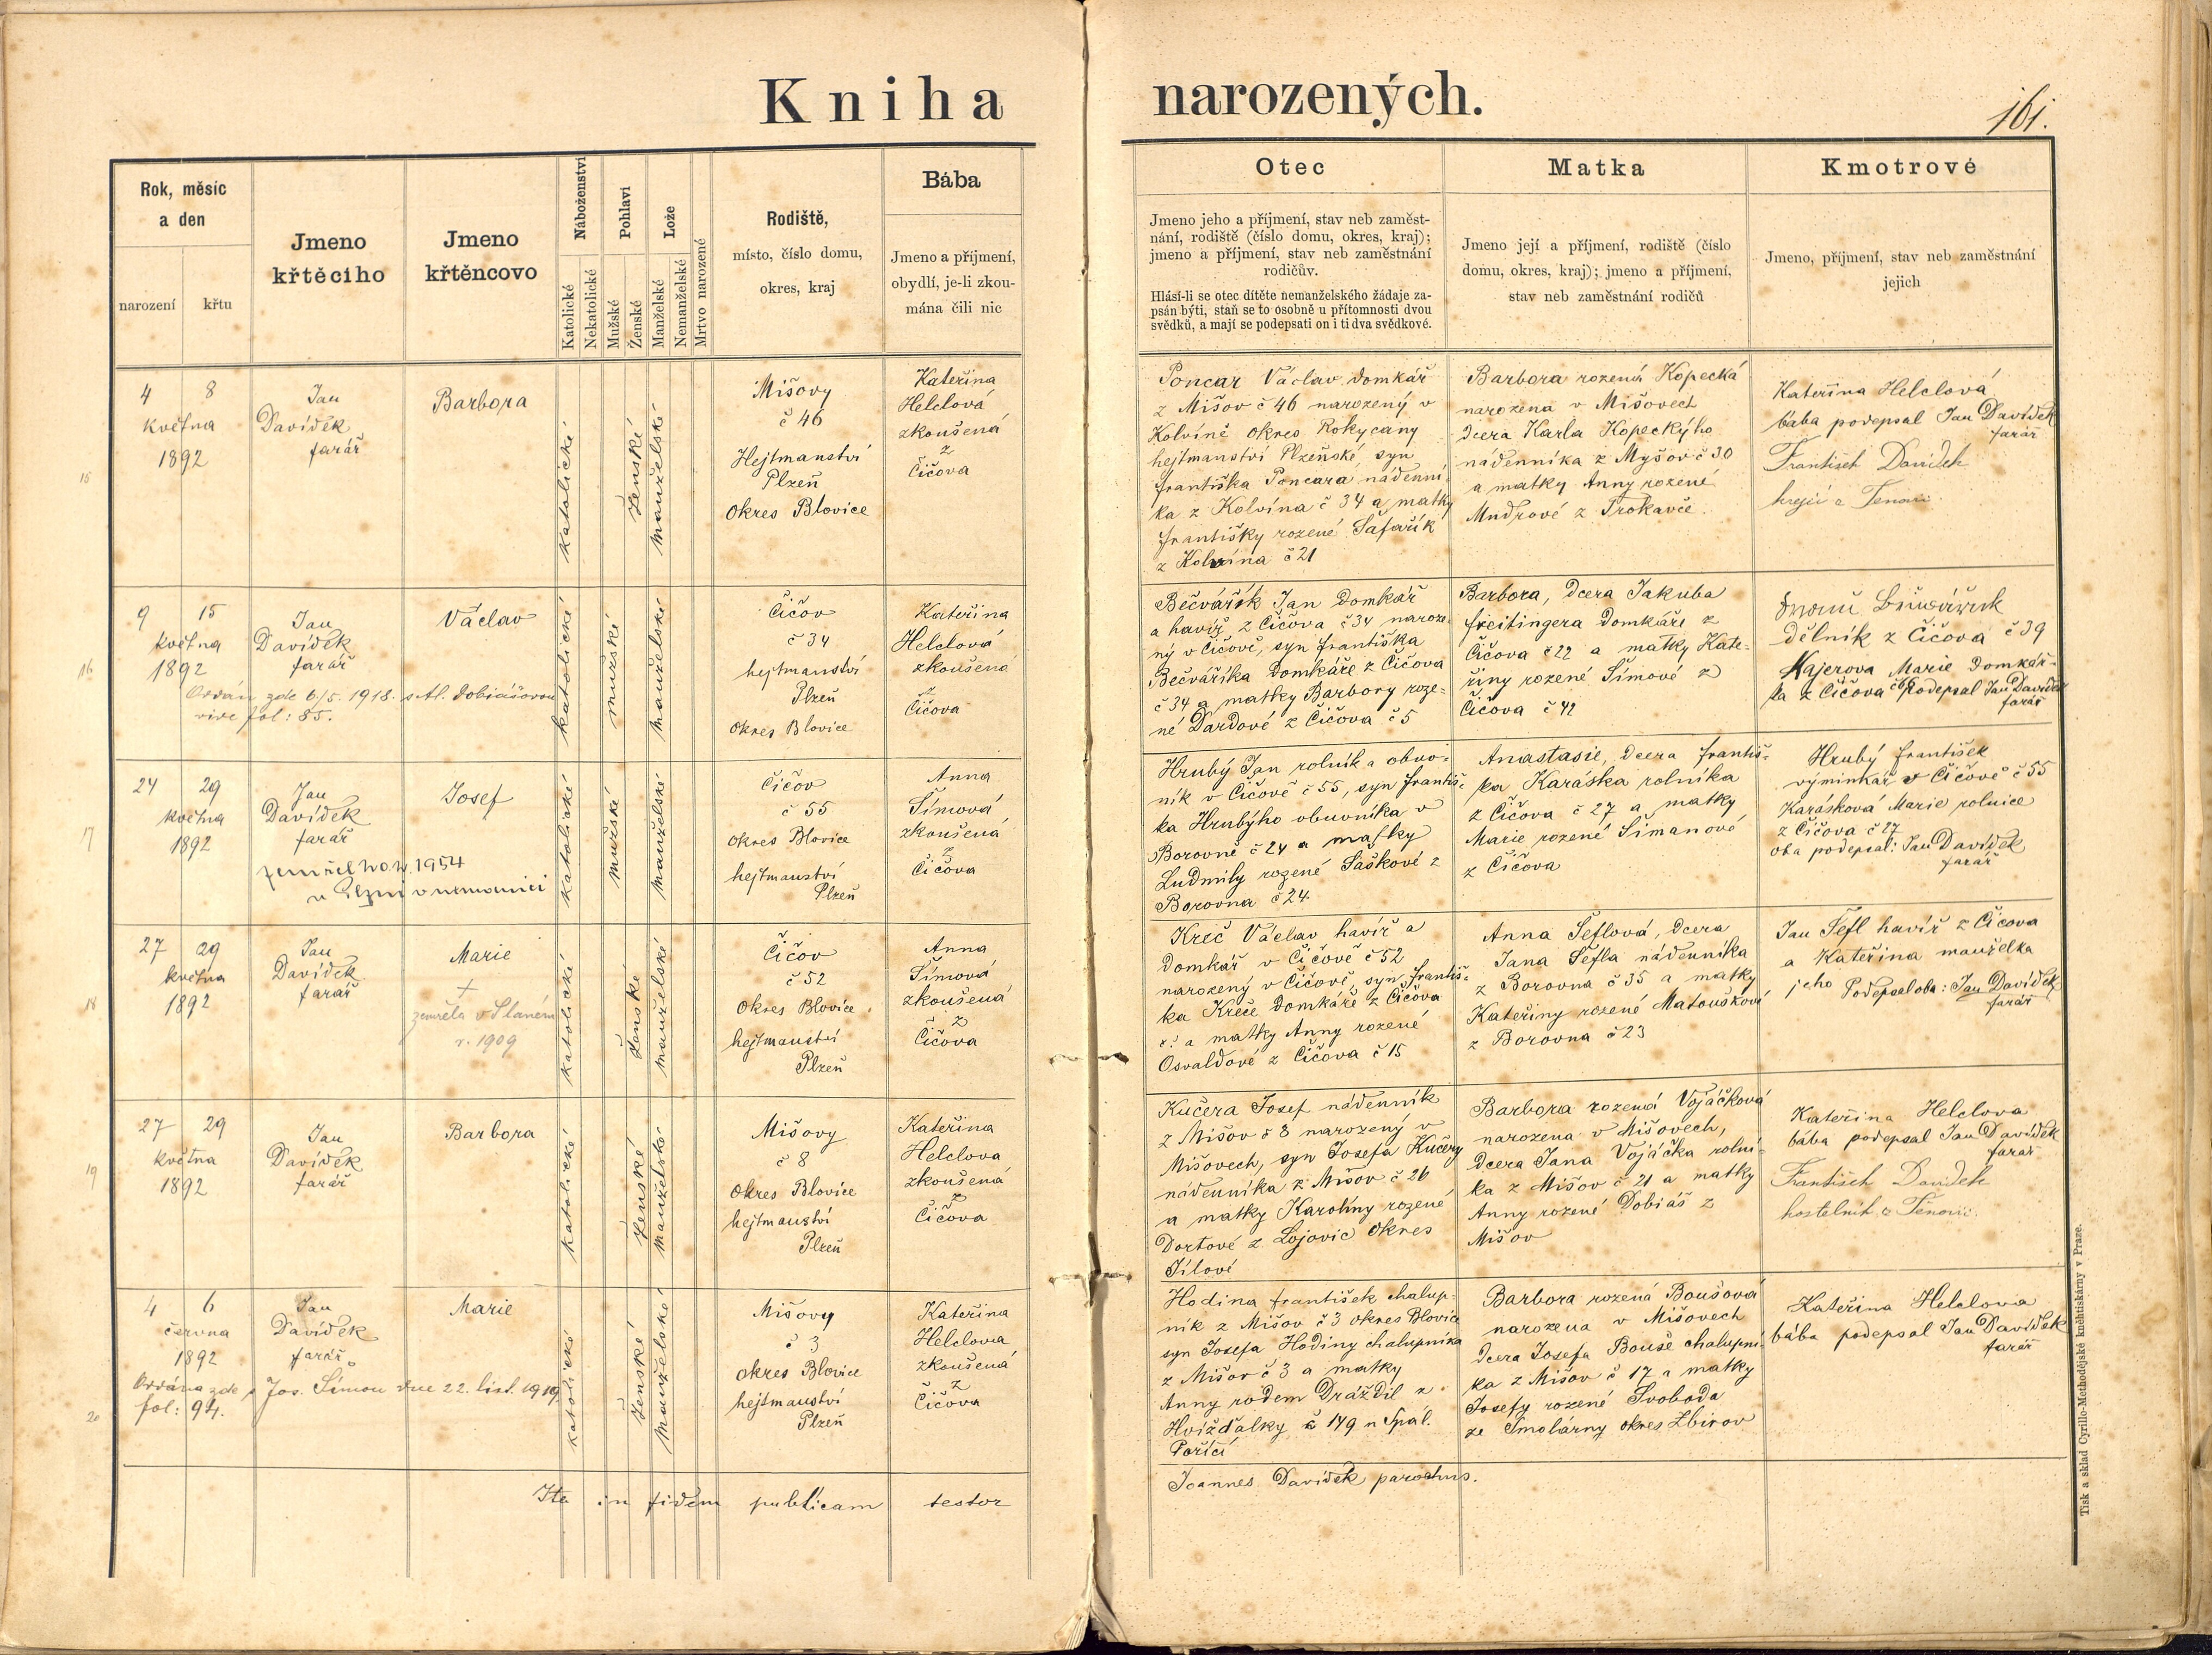 Kniha narozených.
161.
Rok, měsíc
a den
narození
křtu
Jmeno
křtěcího
Jmeno
křtěncovo
Náboženství
Katolické
Nekatolické
Pohlaví
Mužské
Ženské
Lože
Manželské
Nemanželské
Mrtvo narozené
Rodiště,
místo, číslo domu,
okres, kraj
Bába
Jmeno a příjmení,
obydlí, je-li zkou-
mána čili nic
Otec
Jmeno jeho a příjmení, stav neb zaměst-
nání, rodiště (číslo domu, okres, kraj);
jmeno a příjmení, stav neb zaměstnání
rodičův.
Hlásí-li se otec dítěte nemanželského žádaje za-
psán býti, staň se to osobně u přítomnosti dvou
svědků, a mají se podepsati on i ti dva svědkové.
Matka
Jmeno její a příjmení, rodiště (číslo
domu, okres, kraj); jmeno a příjmení,
stav neb zaměstnání rodičů
Kmotrové
Jmeno, příjmení, stav neb zaměstnání
jejich
15
4 8
května
1892
Jan
Davídek
farář
Barbora
katolické
ženské
manželské
Mišovy
č 46
Hejtmanství
Plzeň
Okres Blovice
Kateřina
Helclová
zkoušená
z
Čičova
Poncar Václav domkář
z Mišov č 46 narozený v
Kolvíně okres Rokycany
hejtmanství Plzeňské syn
Františka Poncara nádenní-
ka z Kolvína č 34 a matky
Františky rozené Šafařík
z Kolvína č 21
Barbora rozená Kopecká
narozena v Mišovech
dcera Karla Kopeckýho
nádenníka z Myšov č 30
a matky Anny rozené
Mudrové z Trokavče.
Kateřina Helclová
bába podepsal Jan Davídek
farář
František Davídek
krejčí z
16
9 15
května
1892
Jan
Davídek
farář
Václav
Oddán zde 6/5. 1918. s Al. Dobiášovou
vide fol: 85.
katolické
mužské
manželské
Čičov
č 34
hejtmanství
Plzeň
okres Blovice
Kateřina
Helclová
zkoušená
z
Čičova
Bečvářík Jan Domkář
a havíř z Čičova č 34 naroze-
ný v Čičově, syn Františka
Bečváříka Domkáře z Čičova
č 34 a matky Barbory roze-
né Dardové z Čičova č 5
Barbora, dcera Jakuba
Freitingera Domkáře z
Čičova č 22 a matky Kate-
řiny rozené Šímové z
Čičova č 42
dělník z Čičova č 39
Majerova Marie Domkář-
ka z Čičova podepsal Jan Davídek
farář
17
24 29
května
1892
Jan
Davídek
farář
Josef
zemřel 1954
v Plzni v nemocnici
katolické
mužské
manželské
Čičov
č 55
okres Blovice
hejtmanství
Plzeň
Anna
Šímová
zkoušená
z
Čičova
Hrubý Jan rolník a obuv-
ník v Čičově č 55, syn Františ-
ka Hrubýho obuvníka v
Borovně č 24 a matky
Ludmily rozené Šáškové z
Borovna č 24
Anastasie, dcera Františ-
ka Karáska rolníka
z Čičova č 27 a matky
Marie rozené Šimanové
z Čičova
Hrubý František
výminkář v Čičově č 55
Karásková Marie rolnice
z Čičova č 27
oba podepsal: Jan Davídek
farář
18
27 29
května
1892
Jan
Davídek
farář
Marie
+
zemřela v Slaném
r. 1909
katolické
ženské
manželské
Čičov
č 52
Okres Blovice
hejtmanství
Plzeň
Anna
Šímová
zkoušená
z
Čičova
Kreč Václav havíř a
Domkář v Čičově č 52
narozený v Čičově, syn Františ-
ka Kreče Domkáře z Čičova
č. a matky Anny rozené
Osvaldové z Čičova č 15
Anna Šeflová, dcera
Jana Šefla nádenníka
z Borovna č 35 a matky
Kateřiny rozené Matouškové
z Borovna č 23
Jan Šefl havíř z Čičova
a Kateřina manželka
jeho Podepsal oba: Jan Davídek
farář
19
27 29
května
1892
Jan
Davídek
farář
Barbora
katolické
ženské
manželské
Mišovy
č 8
Okres Blovice
hejtmanství
Plzeň
Kateřina
Helclova
zkoušená
z
Čičova
Kučera Josef nádenník
z Mišov č 8 narozený v
Mišovech, syn Josefa Kučery
nádenníka z Mišov č 26
a matky Karolíny rozené
Dortové z Lojovic Okres
Jílové
Barbora rozená Vojáčková
narozena v Mišovech,
dcera Jana Vojáčka rolní-
ka z Mišov č 21 a matky
Anny rozené Dobiáš z
Mišov
Kateřina Helclova
bába podepsal Jan Davídek
farář
František Davídek
kostelník z
20
4 6
června
1892
Jan
Davídek
farář
Marie
Oddána zde s Jos. Šímou dne 22. list. 1919
fol: 94.
katolické
ženské
manželské
Mišovy
č 3
okres Blovice
hejtmanství
Plzeň
Kateřina
Helclova
zkoušená
z
Čičova
Hodina František chalup-
ník z Mišov č 3 okres Blovice
syn Josefa Hodiny chalupníka
z Mišov č 3 a matky
Anny rodem Dráždil z
Hvížďalky č 179 n Spál.
Poříčí
Barbora rozená Boušová
narozena v Mišovech
dcera Josefa Bouše chalupní-
ka z Mišov č 17 a matky
Josefy rozené Svoboda
ze Smolárny okres Zbirov
Kateřina Helclova
bába podepsal Jan Davídek
farář
Ita in fidem publicam testor
Joannes Davídek parochus.
Tisk a sklad Cyrillo-Methodějské knihtiskárny v Praze.